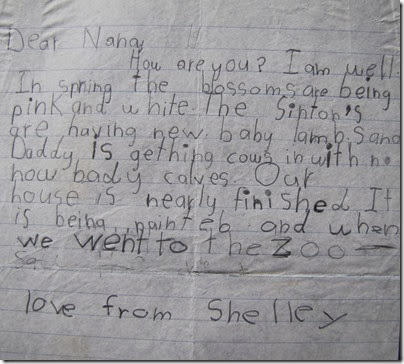 Dear Nana,
How are you? I am well.
In spring the blossoms are being
pink and white. The Sinton's
are having new baby lambs and
Daddy is gething cows in with no
how bady calves. Our
house is nearly finished. It
is being painteb and when
we went to the zoo —
love from Shelley